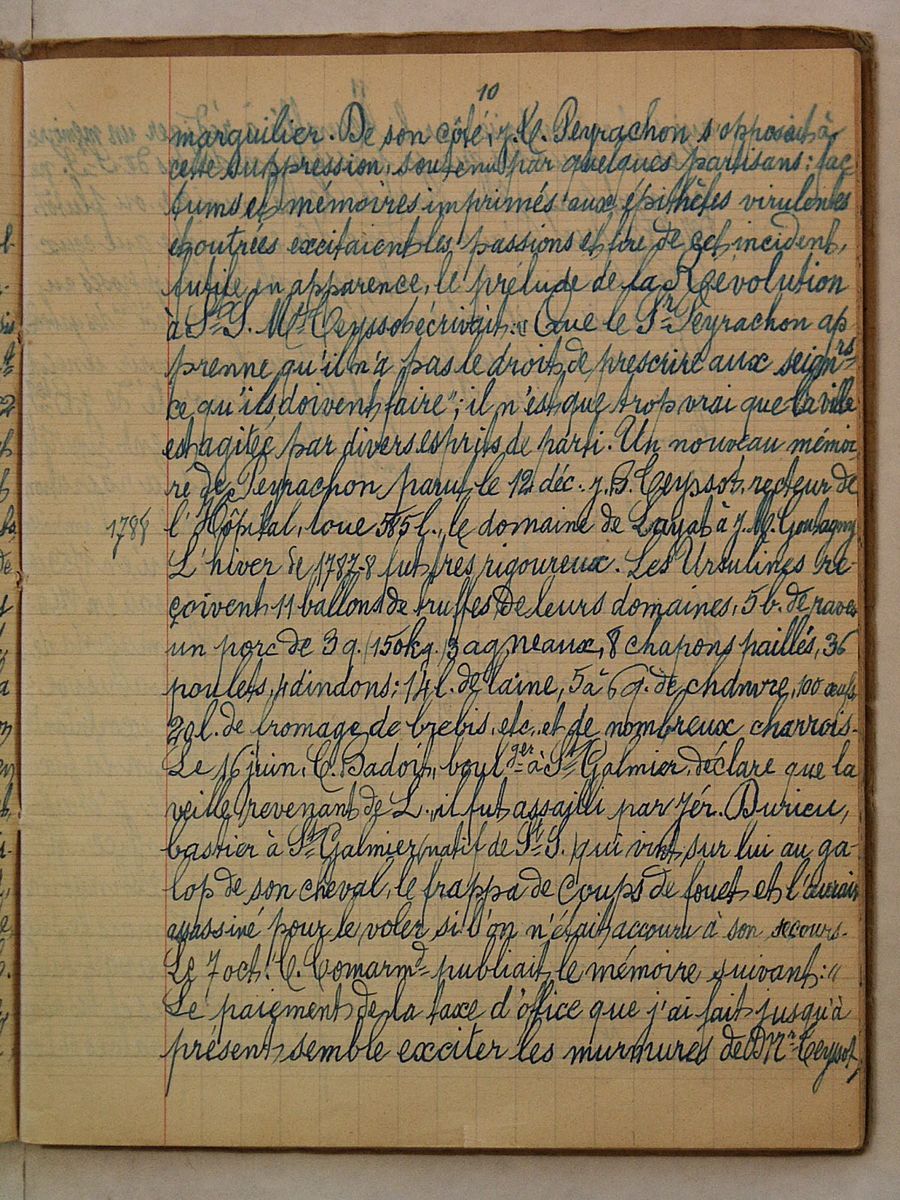 10
marguilier. De son côté, J.C. Peyrachon s'opposait à
cette suppression, soutenu par quelques partisans: fac
tums et mémoires imprimés aux épithètes virulentes
et outrées excitaient les passions et de cet incident,
futile en apparence, le prélude de la Révolution
à St S. Mtre Ceyssot écrivait: « Que le Sr Peyrachon ap
prenne qu'il n'a pas le droit de prescrire aux seignrs
ce qu'ils doivent faire"; il n'est que trop vrai que la ville
est agitée par divers esprits de parti. Un nouveau mémoi-
re de Peyrachon parut le 12 déc. J.B. Ceyssot, recteur de
1788 l'Hôpital, loue 585 l., le domaine de Layat à J.M. Goutagny
L'hiver de 1787-8 fut très rigoureux. Les Ursulines re-
çoivent 11 ballons de truffes de leurs domaines, 5 b. de raves
un porc de 3 q. (150kg.) 3 agneaux, 8 chapons paillés, 36
poulets, 4 dindons; 14 l. de laine, 5 à 6 q. de chanvre, 100 œufs
20 l. de fromage de brebis, etc, et de nombreux charrois.
Le 16 juin, C. Badoit, boulger à St Galmier, déclare que la
veille, revenant de L., il fut assailli par Jér. Durieu,
bastier à St Galmier (natif de St S.) qui vint sur lui au ga-
lop de son cheval, le frappa de coups de fouet et l'aurait
assassiné pour le voler si l'on n'était accouru à son secours.
Le 7 oct. C. Comarmd publiait le mémoire suivant: «
Le paiement de la taxe d'office que j'ai fait jusqu'à
présent semble exciter les murmures de Mr Ceyssot,